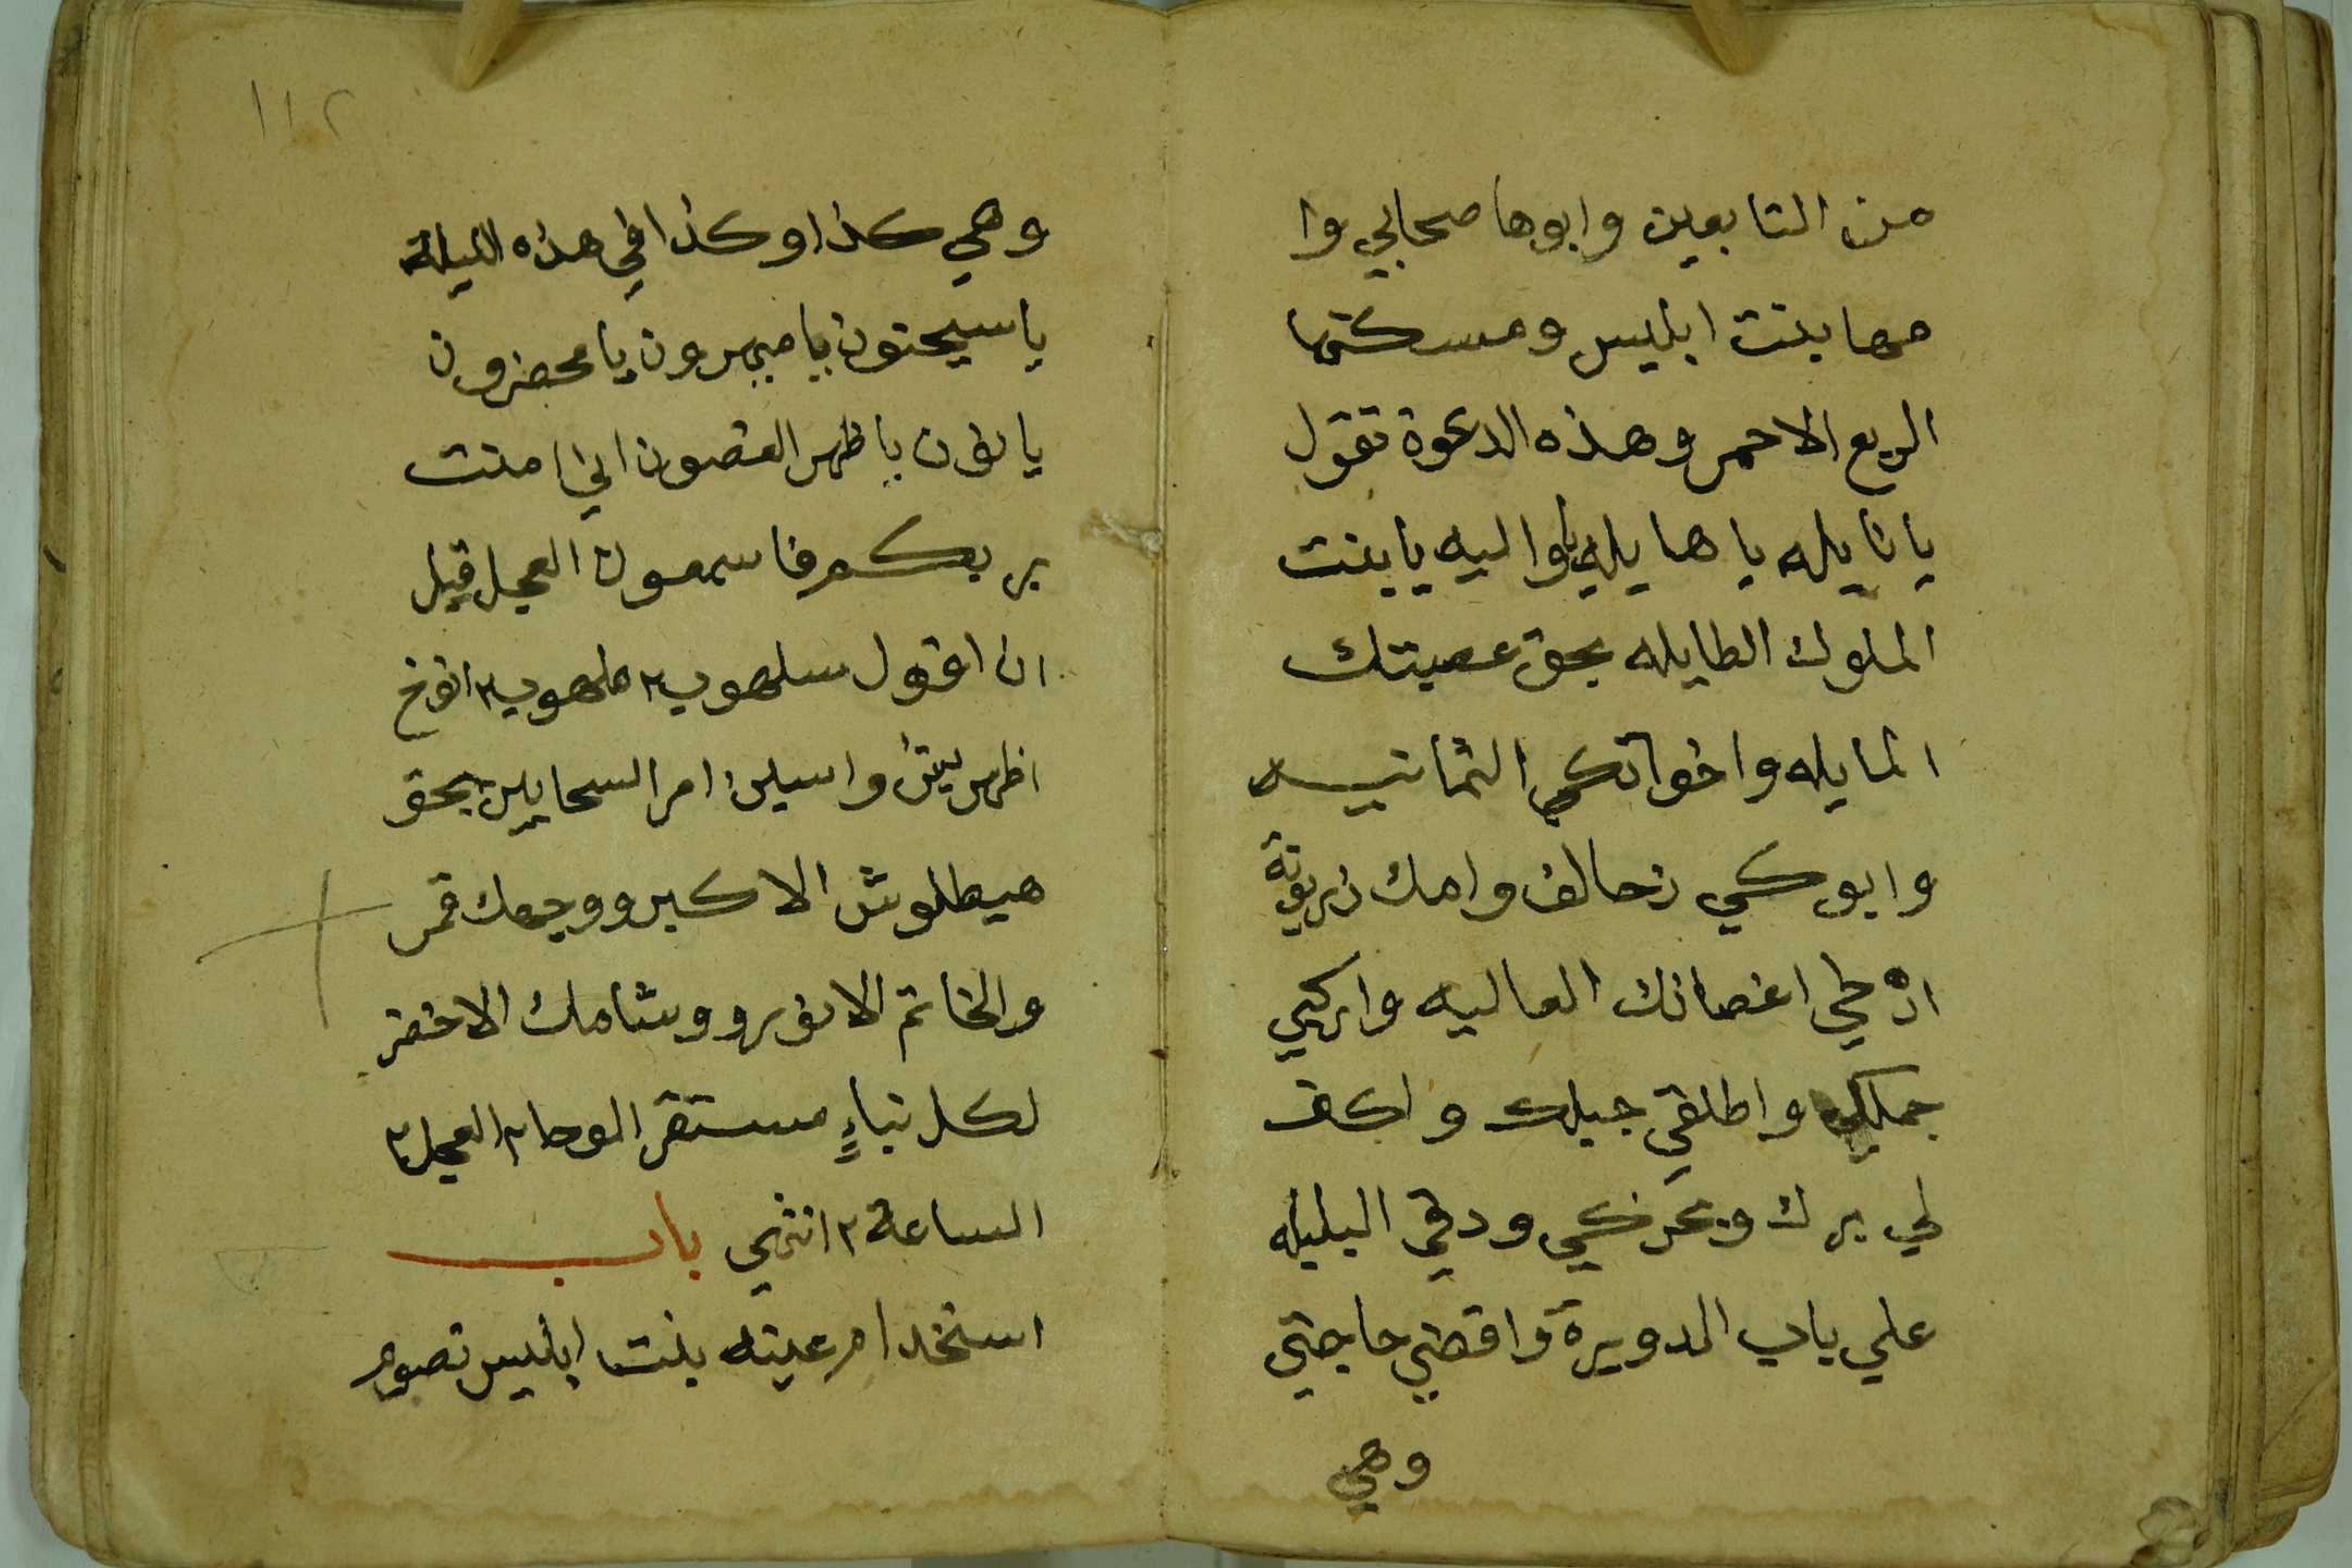 من التابعين وابوها صحابي وا
مها بنت ابليس ومسكنها
الربع الاحمر وهذه الدعوة تقول
يا نايله يا هايله يا واليه يا بنت
الملوك الطايله بحق عصبتك
المايله واخواتكي الثمانيه
وابوكي زحالف وامك زريونة
ارخي اغصانك العاليه واركبي
جملكي واطلقي جبلك واكف
لي برك وعرضكي ودقي البليله
علي باب الدويرة واقضي حاجتي
وهي
١١٢
وهي كذا وكذا في هذه الليلة
يا سيحتون يا ميهرون يا محضرون
يا نون يا ظهر الغصون اني امنت
بربكم فاسمعون العجل قبل
ان اقول سلهوب ٢ ملهوب ٢ انوخ
اظهر بيتن واسلن امر السحايين بحق
هيطلوش الاكبر ووجهك قمر
والخاتم الانور ووشامك الاخضر
لكل نباءٍ مستقر الوحا ٢ العجل ٢
الساعة ٢ انتهي باب
استخدام عينه بنت ابليس تصوم